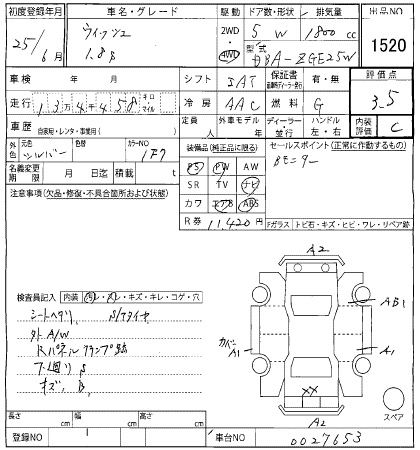 初度登録年月
車名・グレード
駆動
ドア数・形状
排気量
出品NO
25/6月
ウィッシュ
1.8S
2WD
4WD
5 W
1800 cc
型式
DBA-ZGE25W
1520
車検 年 月
シフト
IAT
保証書
有・無
評価点
3.5
走行
13万4千458
キロ
マイル
冷房
AAC
燃料
G
車歴
自家用・レンタ・事業用( )
定員
人
外車モデル
年
ディーラー
・並行
ハンドル
左・右
内装
評価
C
外色
元色
シルバー
カラーNO
1F7
装備品(純正品に限る)
セールスポイント(正常に作動するもの)
Bモニター
名義変更
期限
月 日迄
積載
t
PS PW AW
SR TV ナビ
カワ エアB ABS
注意事項(欠品・修復・不具合箇所および状態)
R券
11,420円
Fガラス
トビ石・キズ・ヒビ・ワレ・リペア跡
検査員記入
内装
汚レ・スレ・キズ・キレ・コゲ・穴
シートヘタリ
S/タイヤ
外 A/W
Rパネルクランプ跡
下廻り S
キズ、B
A2
AB1
A1
カバー A1
XX
A2
スペア
長さ cm
幅 cm
高さ cm
登録NO
車台NO
0027653